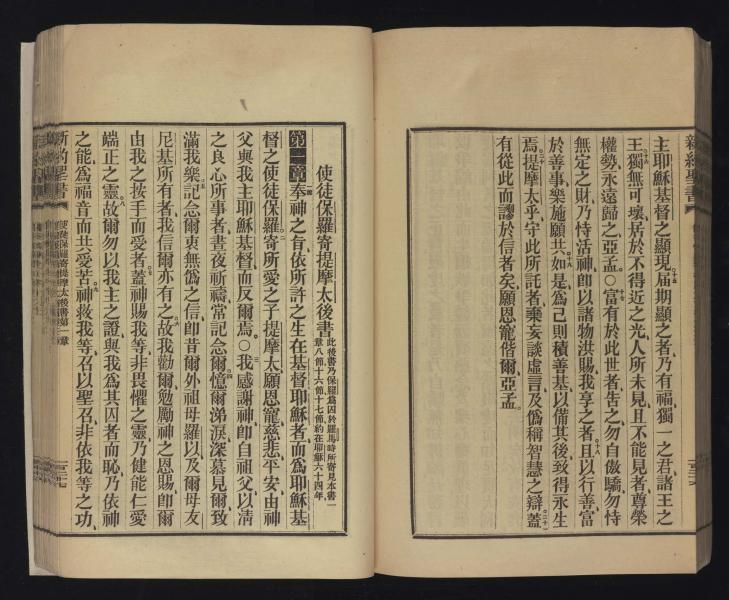 主耶穌基督之顯現屆期顯之者乃有福獨一之君諸王之
王獨無可壞居於不得近之光人所未見且不能見者尊榮
權勢永遠歸之亞孟○富有於此世者吿之勿自傲驕勿恃
無定之財乃恃活神卽以諸物洪賜我享之者且以行善富
於善事樂施願共如是爲己則積善基以備其後致得永生
焉提摩太乎守此所託者棄妄談虛言及僞稱智慧之辯蓋
有從此而謬於信者矣願恩寵偕爾亞孟
使徒保羅寄提摩太後書
此後書乃保羅爲囚於羅馬時所寄見本書一
章八節十六節十七節約在耶穌六十四年
第一章奉神之旨依所許之生在基督耶穌者而爲耶穌基
督之使徒保羅寄所愛之子提摩太願恩寵慈悲平安由神
父與我主耶穌基督而及爾焉○我感謝神卽自祖父以淸
之良心所事者晝夜祈禱常記念爾憶爾涕淚深慕見爾致
滿我樂記念爾衷無僞之信卽昔爾外祖母羅以及爾母友
尼基所有者我信爾亦有之故我勸爾勉勵神之恩賜卽爾
由我之按手而受者蓋神賜我等非畏懼之靈乃健能仁愛
端正之靈故爾勿以我主之證與我爲其囚者而恥乃依神
之能爲福音而共受苦神救我等召以聖召非依我等之功
新約聖書
使徒保羅寄提摩太後書第一章